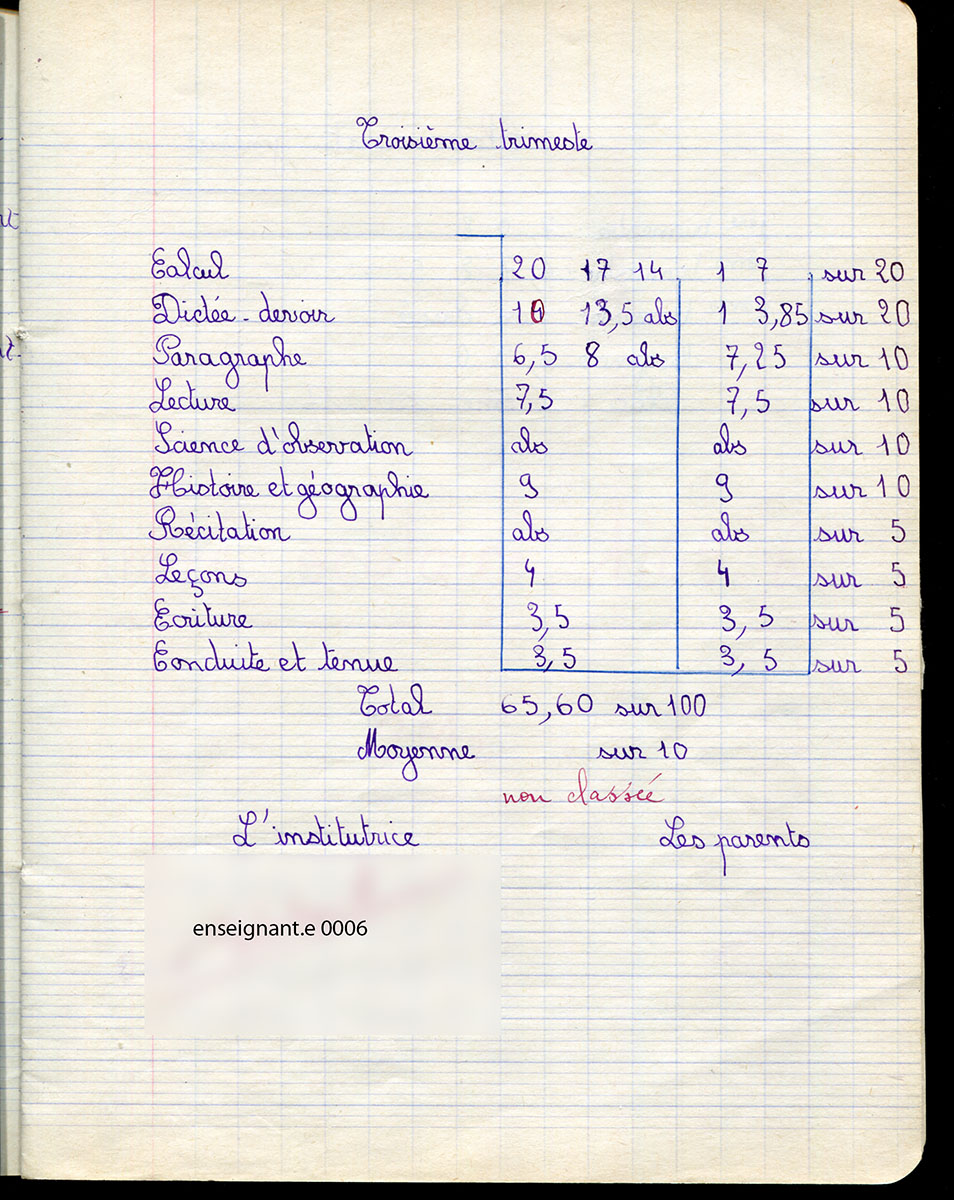 Troisième trimeste
Calcul 20 17 14 1 7 sur 20
Dictée - devoir 10 13,5 abs 1 3,85 sur 20
Paragraphe 6,5 8 abs 7,25 sur 10
Lecture 7,5 7,5 sur 10
Science d'observation abs abs sur 10
Histoire et géographie 9 9 sur 10
Récitation abs abs sur 5
Leçons 4 4 sur 5
Ecriture 3,5 3,5 sur 5
Conduite et tenue 3,5 3,5 sur 5
Total 65,60 sur 100
Moyenne sur 10
non classée
L'institutrice Les parents
enseignant.e 0006